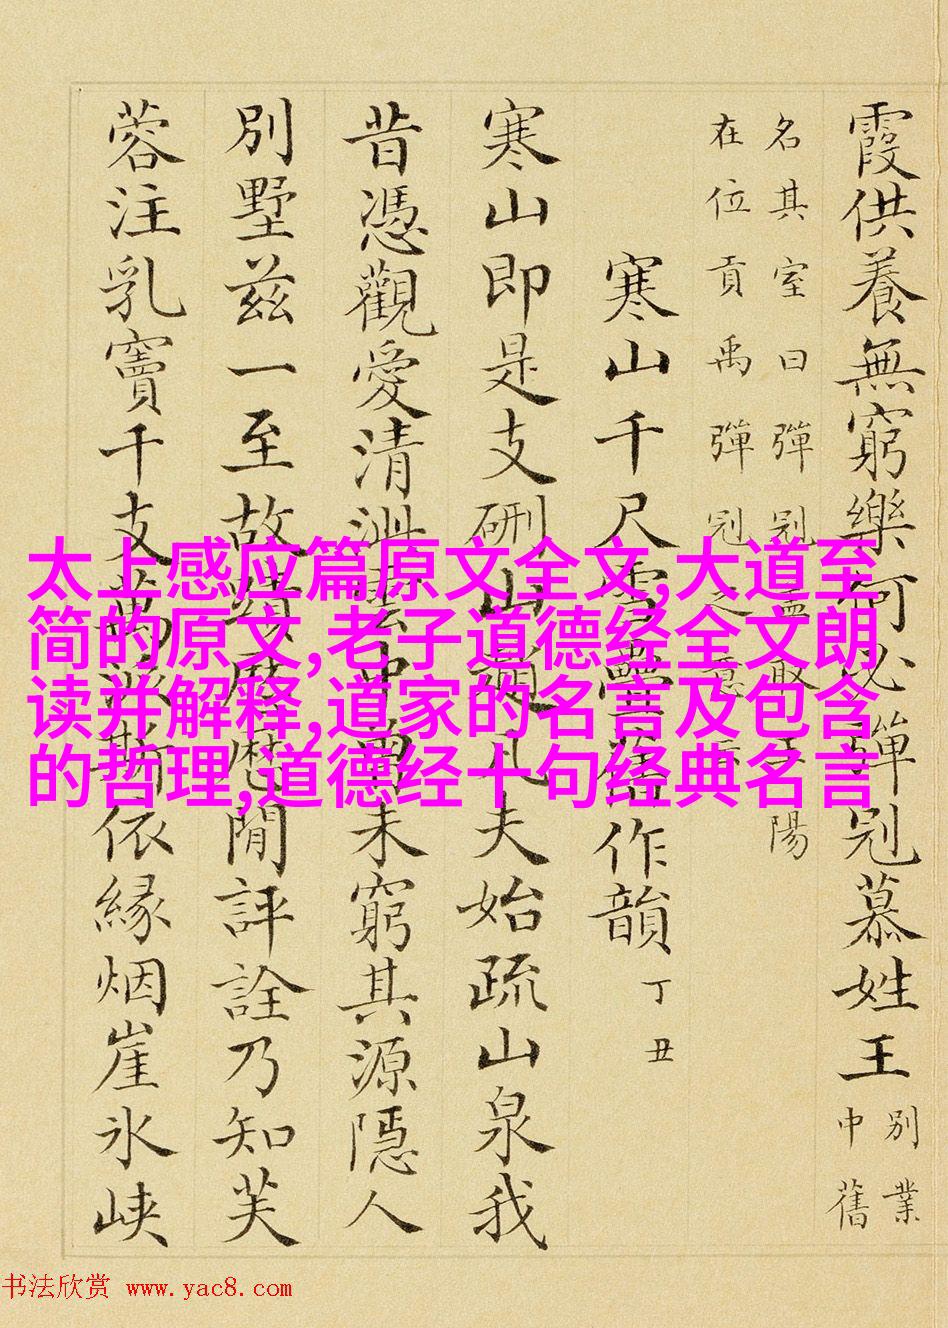 霞供養無窮樂何必彈冠慕姓王
別業
中舊
名其室曰彈冠蓋取王陽
在位貢禹彈冠之意
寒山千尺雪疊舊作韻
丁丑
寒山即是支硎山凡夫始疏山泉我
昔憑觀愛清泚中未窮其源隱人
別墅茲一至故蹟歷歷閒評詮乃知芙
蓉注乳竇千支萬派斯依緣烟崖氷峽
太上感应篇原文全文,大道至
简的原文,老子道德经全文朗
读并解释,道家的名言及包含
的哲理,道德经十句经典名言
书法欣赏 www.yac8.com